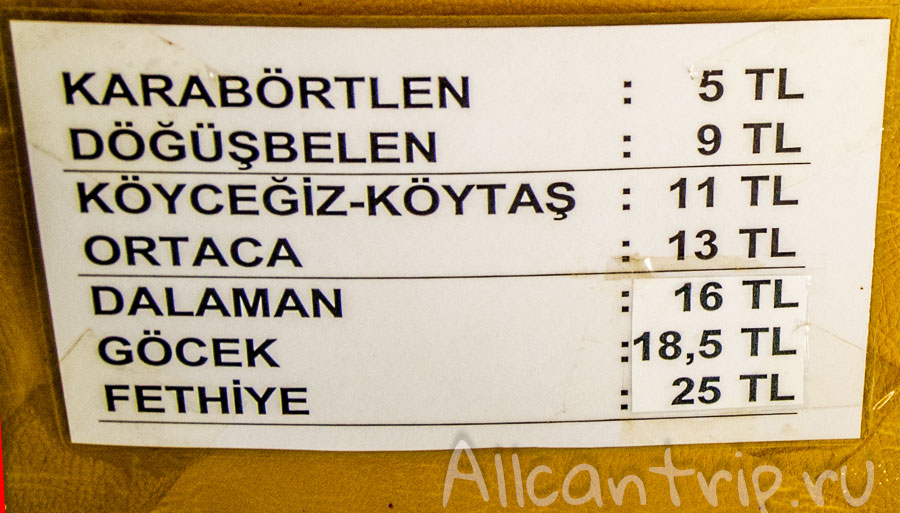 KARABÖRTLEN : 5 TL
DÖĞÜŞBELEN : 9 TL
KÖYCEĞİZ-KÖYTAŞ : 11 TL
ORTACA : 13 TL
DALAMAN : 16 TL
GÖCEK :18,5 TL
FETHİYE : 25 TL
Allcantrip.ru